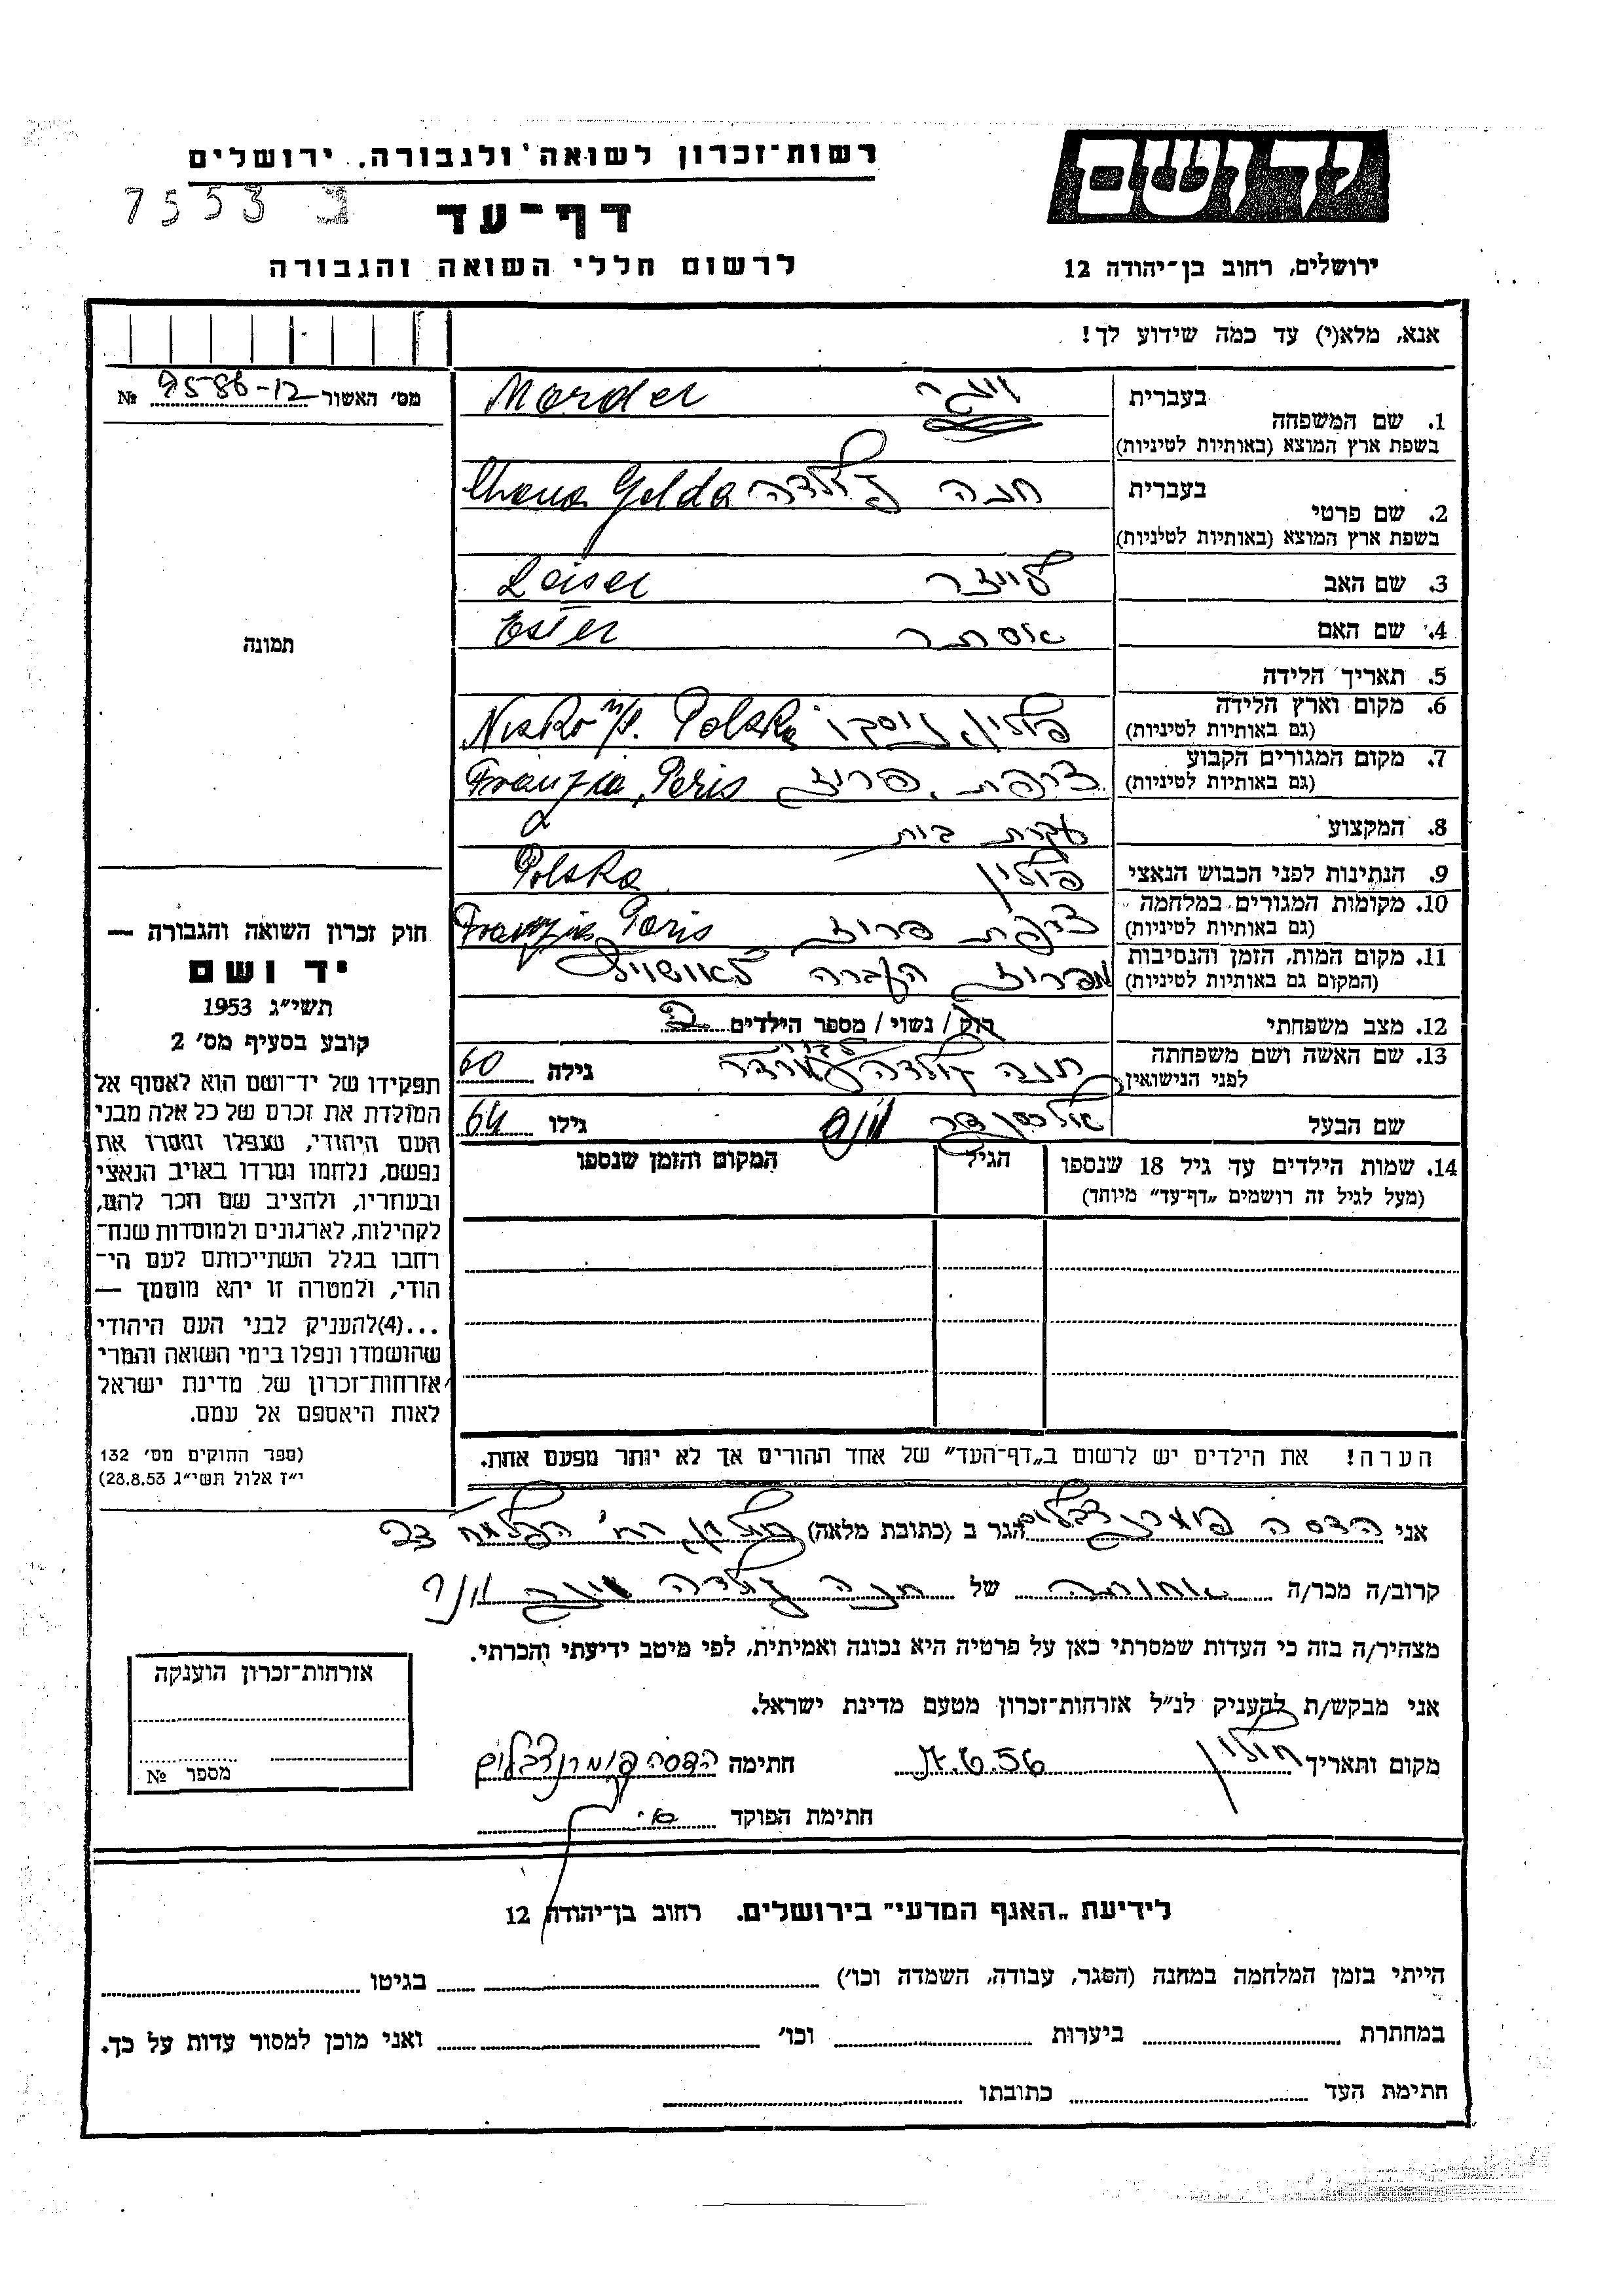 רשות־זכרון לשואה ולגבורה, ירושלים
יד ושם
7553
דף־עד
לרשום חללי השואה והגבורה
ירושלים, רחוב בן־יהודה 12
אנא, מלא(י) עד כמה שידוע לך!
מס׳ האשור 9586-12 №
תמונה
בעברית
1. שם המשפחה Morder
בשפת ארץ המוצא (באותיות לטיניות)
בעברית חנה גולדה Chana Golda
2. שם פרטי
בשפת ארץ המוצא (באותיות לטיניות)
3. שם האב לייזר Leiser
4. שם האם אסתר Ester
5. תאריך הלידה
6. מקום וארץ הלידה פולין, ניסקו Nisko n/s. Polska
(גם באותיות לטיניות)
7. מקום המגורים הקבוע צרפת, פריז Franzia, Paris
(גם באותיות לטיניות)
8. המקצוע עקרת בית
9. הנתינות לפני הכבוש הנאצי פולין Polska
10. מקומות המגורים במלחמה צרפת פריז Franzia Paris
(גם באותיות לטיניות)
11. מקום המות, הזמן והנסיבות מפריז הועברה לאושויץ
(המקום גם באותיות לטיניות)
12. מצב משפחתי רוק / נשוי / מספר הילדים
13. שם האשה ושם משפחתה חנה גולדה גילה 60
לפני הנישואין
שם הבעל אלכסנדר גילו 64
14. שמות הילדים עד גיל 18 שנספו הגיל המקום והזמן שנספו
(מעל לגיל זה רושמים „דף־עד״ מיוחד)
הערה! את הילדים יש לרשום ב„דף־העד״ של אחד ההורים אך לא יותר מפעם אחת.
חוק זכרון השואה והגבורה —
יד ושם
תשי״ג 1953
קובע בסעיף מס׳ 2
תפקידו של יד־ושם הוא לאסוף אל
המולדת את זכרם של כל אלה מבני
העם היהודי, שנפלו ומסרו את
נפשם, נלחמו ומרדו באויב הנאצי
ובעוזריו, ולהציב שם וזכר להם,
לקהילות, לארגונים ולמוסדות שנח־
רבו בגלל השתייכותם לעם הי־
הודי, ולמטרה זו יהא מוסמך —
...(4)להעניק לבני העם היהודי
שהושמדו ונפלו בימי השואה והמרי
אזרחות־זכרון של מדינת ישראל
לאות היאספם אל עמם.
(ספר החוקים מס׳ 132
י״ז אלול תשי״ג 28.8.53)
אני הדסה הגר ב (כתובת מלאה) חולון, רח׳
קרוב/ה מכר/ה אחותה של חנה גולדה
מצהיר/ה בזה כי העדות שמסרתי כאן על פרטיה היא נכונה ואמיתית, לפי מיטב ידיעתי והכרתי.
אני מבקש/ת להעניק לנ״ל אזרחות־זכרון מטעם מדינת ישראל.
מקום ותאריך חולון 6.56 חתימה הדסה פומרנצבלום
חתימת הפוקד
אזרחות־זכרון הוענקה
מספר №
לידיעת „האגף המדעי״ בירושלים. רחוב בן־יהודה 12
הייתי בזמן המלחמה במחנה (הסגר, עבודה, השמדה וכו׳) בגיטו
במחתרת ביערות וכו׳ ואני מוכן למסור עדות על כך.
חתימת העד כתובתו